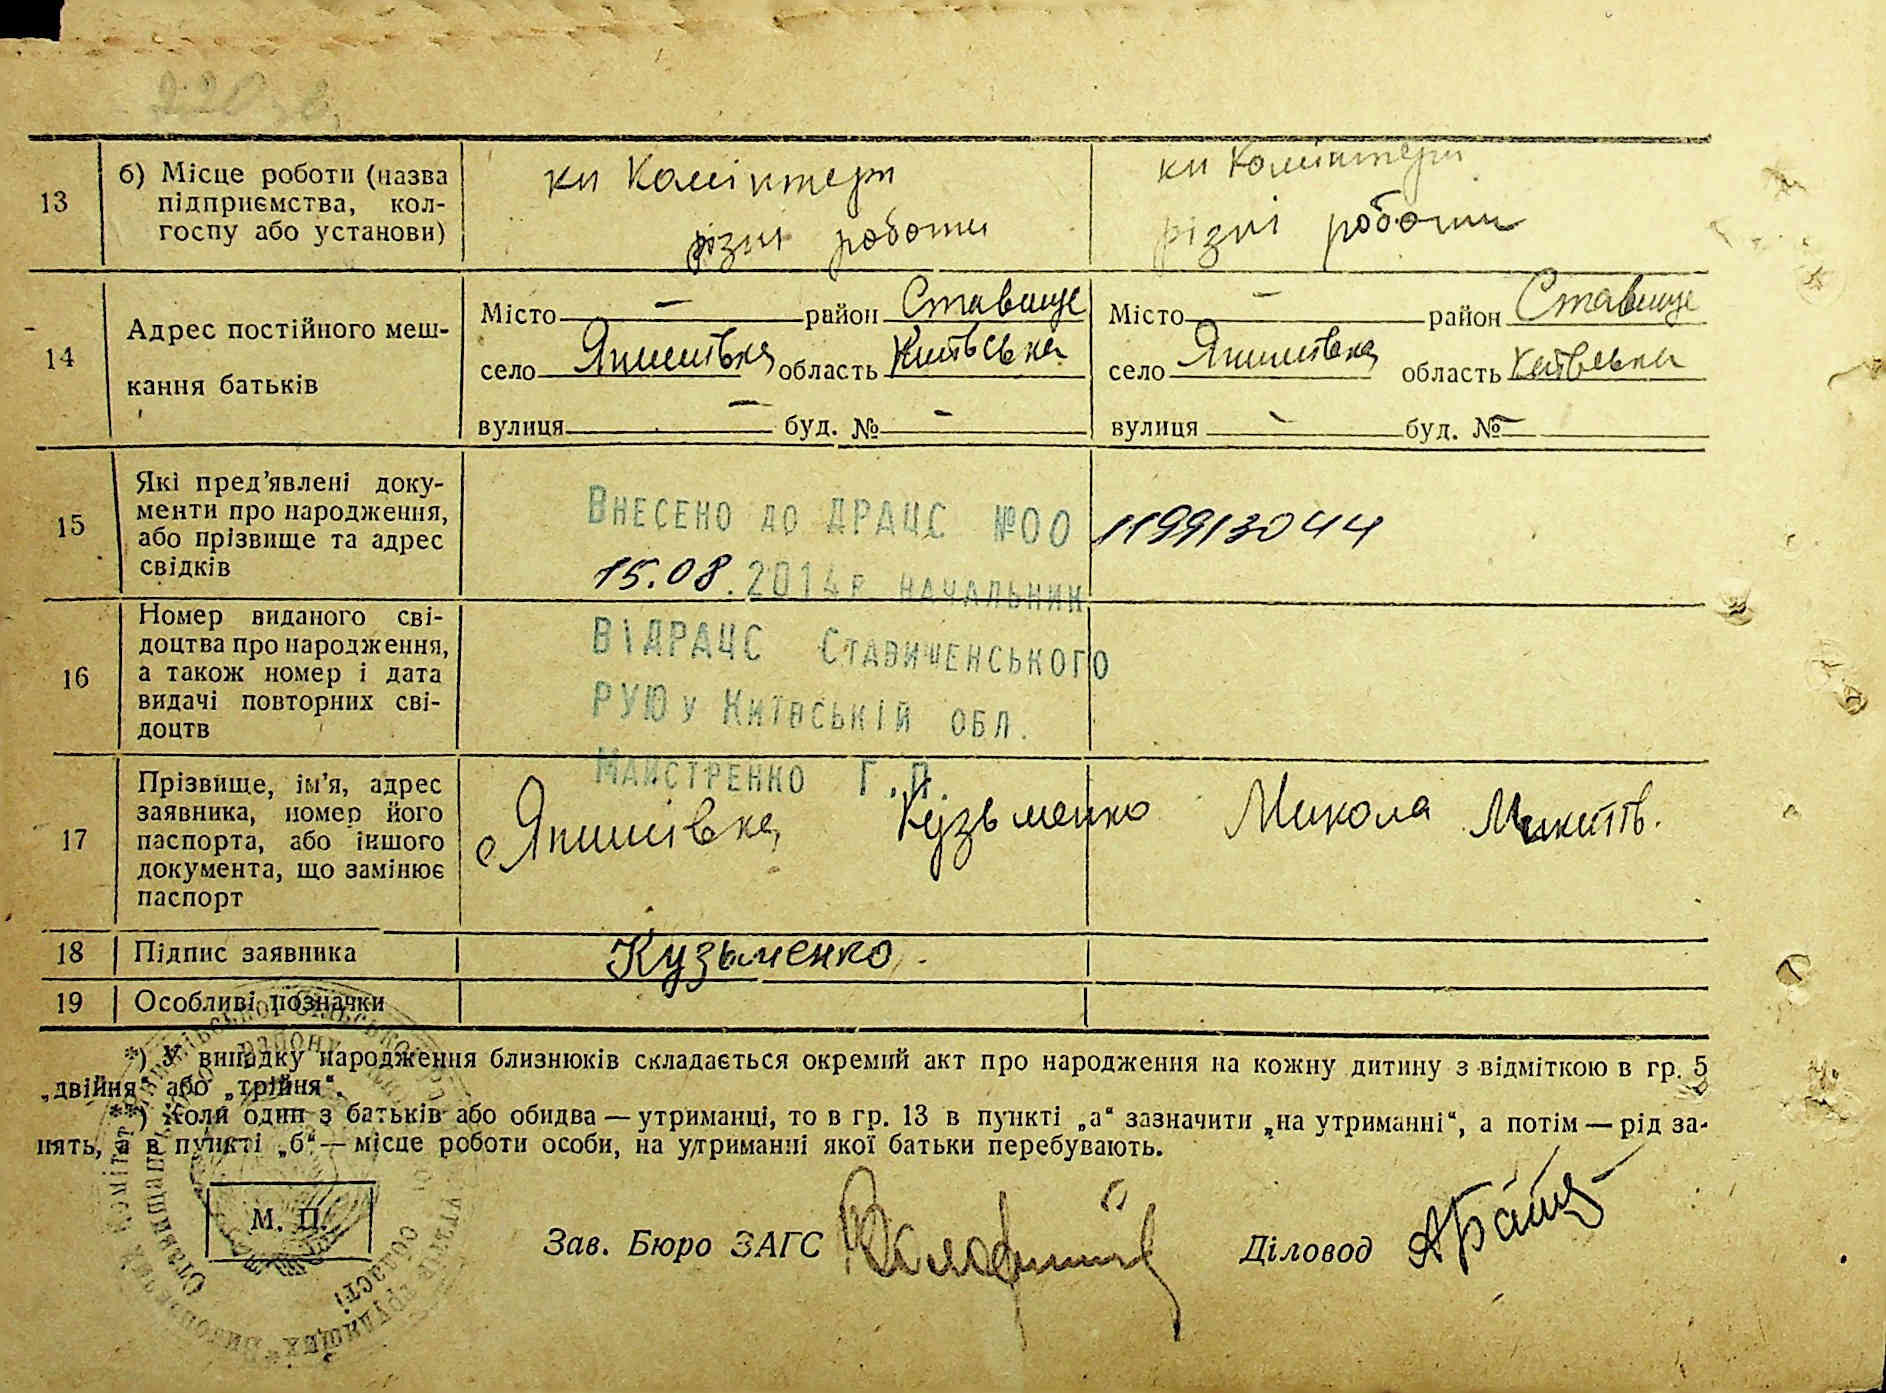 13
б) Місце роботи (назва
підприємства, кол-
госпу або установи)
кп Комінтерн
різні роботи
кп Комінтерн
різні роботи
14
Адрес постійного меш-
кання батьків
Місто — район Ставище
село Япишівка область Київська
вулиця — буд. № —
Місто — район Ставище
село Япишівка область Київська
вулиця — буд. № —
15
Які пред'явлені доку-
менти про народження,
або прізвище та адрес
свідків
Внесено до ДРАЦС №00 119913044
15.08.2014р начальник
ВІДРАЦС Ставищенського
РУЮ у Київській обл.
Майстренко Г.П.
16
Номер виданого сві-
доцтва про народження,
а також номер і дата
видачі повторних сві-
доцтв
17
Прізвище, ім'я, адрес
заявника, номер його
паспорта, або іншого
документа, що замінює
паспорт
с Япишівка Кузьменко Микола Микит.
18
Підпис заявника
Кузьменко.
19
Особливі позначки
*) У випадку народження близнюків складається окремий акт про народження на кожну дитину з відміткою в гр. 5
„двійня" або „трійня".
**) Коли один з батьків або обидва — утриманці, то в гр. 13 в пункті „а" зазначити „на утриманні", а потім — рід за-
нять, а в пункті „б" — місце роботи особи, на утриманні якої батьки перебувають.
М. П.
Зав. Бюро ЗАГС
Діловод